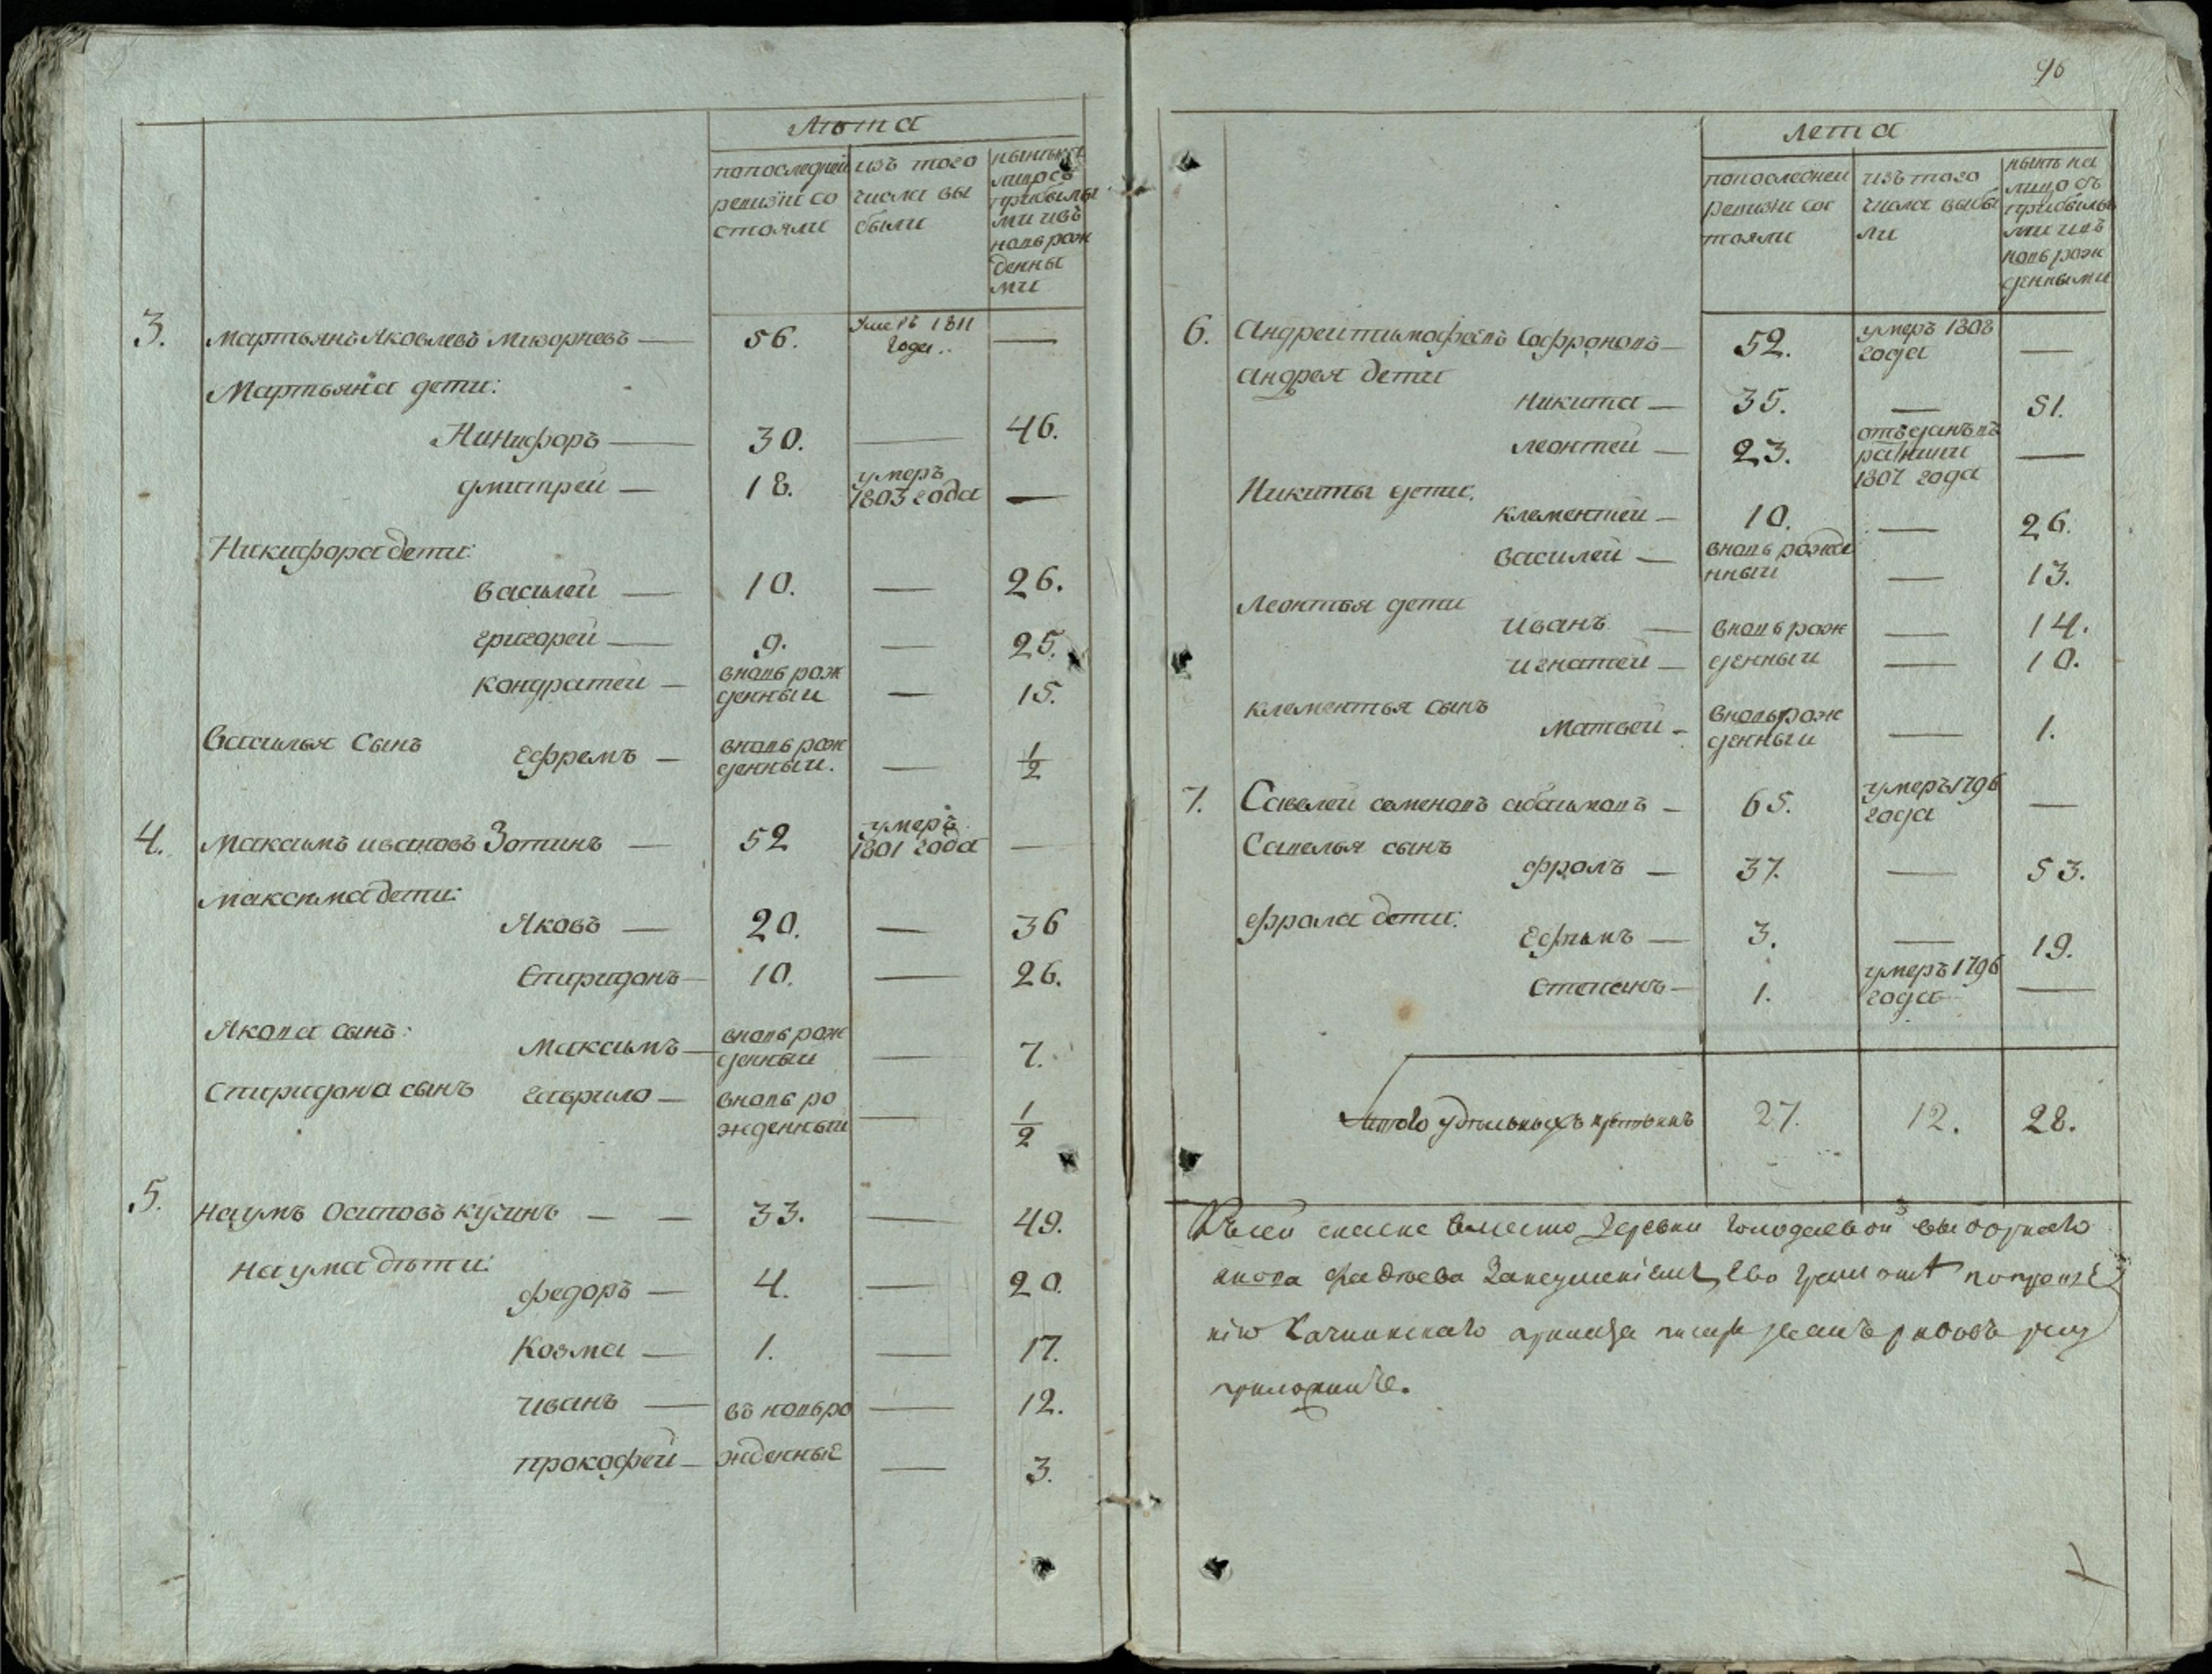 Лѣта
попоследней
ревизiи со
стояли
изъ того
числа вы
были
ныне на
лицо съ
прибылы
ми и въ
новь рож
денны
ми
3. Мартьянъ Яковлевъ — 56. Умеръ 1811 года. —
Мартьяна дети:
Никифоръ — 30. — 46.
дмитрей — 18. умеръ 1803 года —
Никифора дети:
василей — 10. — 26.
григорей — 9. — 25.
кондратей — вновь рож
денный — 15.
Василья Сынъ
Ефремъ — вновь рож
денный. — 1/2
4. Максимъ ивановъ Зотинъ — 52 умеръ 1801 года —
максима дети:
Яковъ — 20. — 36
Спиридонъ — 10. — 26.
Якова сынъ:
максимъ — вновь рож
денный — 7.
Спиридона сынъ гаврило — вновь ро
жденный — 1/2
5. Наумъ Осиповъ кузинъ — — 33. — 49.
наума дѣти:
федоръ — 4. — 20.
Козма — 1. — 17.
иванъ — въ новьро — 12.
прокофей — жденные — 3.
96
лета
попоследней
ревизи сос
тояли
изъ того
числа выбы
ли
нынѣ на
лицо съ
прибылы
ми и въ
новь рож
денными
6. Андрей тимофѣевъ Софроновъ — 52. умеръ 1808
года —
андрея дети
никита — 35. — 51.
леонтей — 23. отъданъ въ
1807 года —
Никиты дети:
клементей — 10. — 26.
василей — вновь рожде
нный — 13.
Леонтья дети
иванъ — вновь рож — 14.
игнатей — денный — 10.
клементья сынъ
матвей — вновь рож
денный — 1.
7. Савелей семеновъ — 65. умеръ 1796
года —
Савелья сынъ
фролъ — 37. — 53.
фрола дети:
Ефимъ — 3. — 19.
степанъ — 1. умеръ 1796
года —
Итого удѣльныхъ крестьянъ 27. 12. 28.
вместо деревни выборнаго
якова Фадѣева ево
руку
приложилъ.